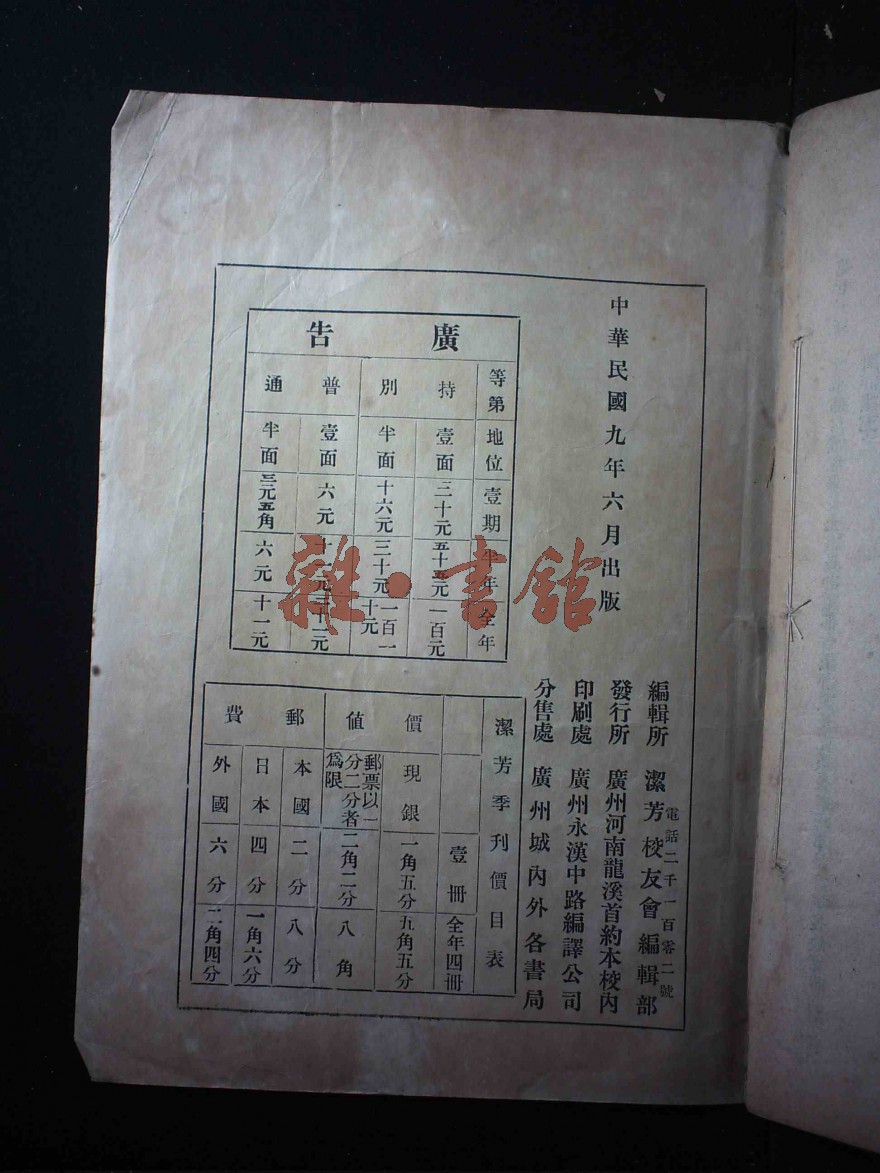 中華民國九年六月出版
編輯所 潔芳校友會編輯部
電話二千一百零二號
發行所 廣州河南龍溪首約本校內
印刷處 廣州永漢中路編譯公司
分售處 廣州城內外各書局
廣告
等第 地位 壹期 半年 全年
持別 壹面 三十元 五十五元 一百元
半面 十六元 三十元 一百一十元
普通 壹面 六元
半面 三元五角 六元 十一元
潔芳季刊價目表
壹冊 全年四冊
價值 現銀 一角五分 五角五分
郵票以一分二分者爲限 二角二分 八角
郵費 本國 二分 八分
日本 四分 一角六分
外國 六分 二角四分
雜·書館